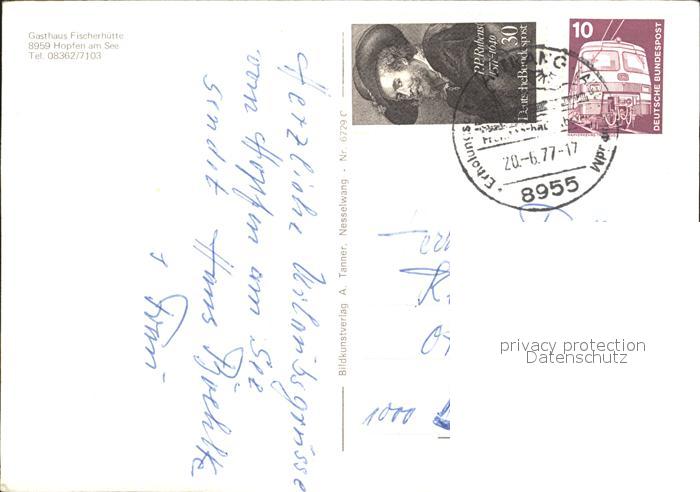 Gasthaus Fischerhütte
8959 Hopfen am See
Tel. 08362/7103
Herzliche Urlaubsgrüsse
vom Hopfen am See
sendet Hans
+ Frau
Bildkunstverlag A. Tanner, Nesselwang - Nr. 6729 C
P.P. Rubens
1577-1640
30
Deutsche Bundespost
10
DEUTSCHE BUNDESPOST
20.-6.77-17
8955
1000
privacy protection
Datenschutz